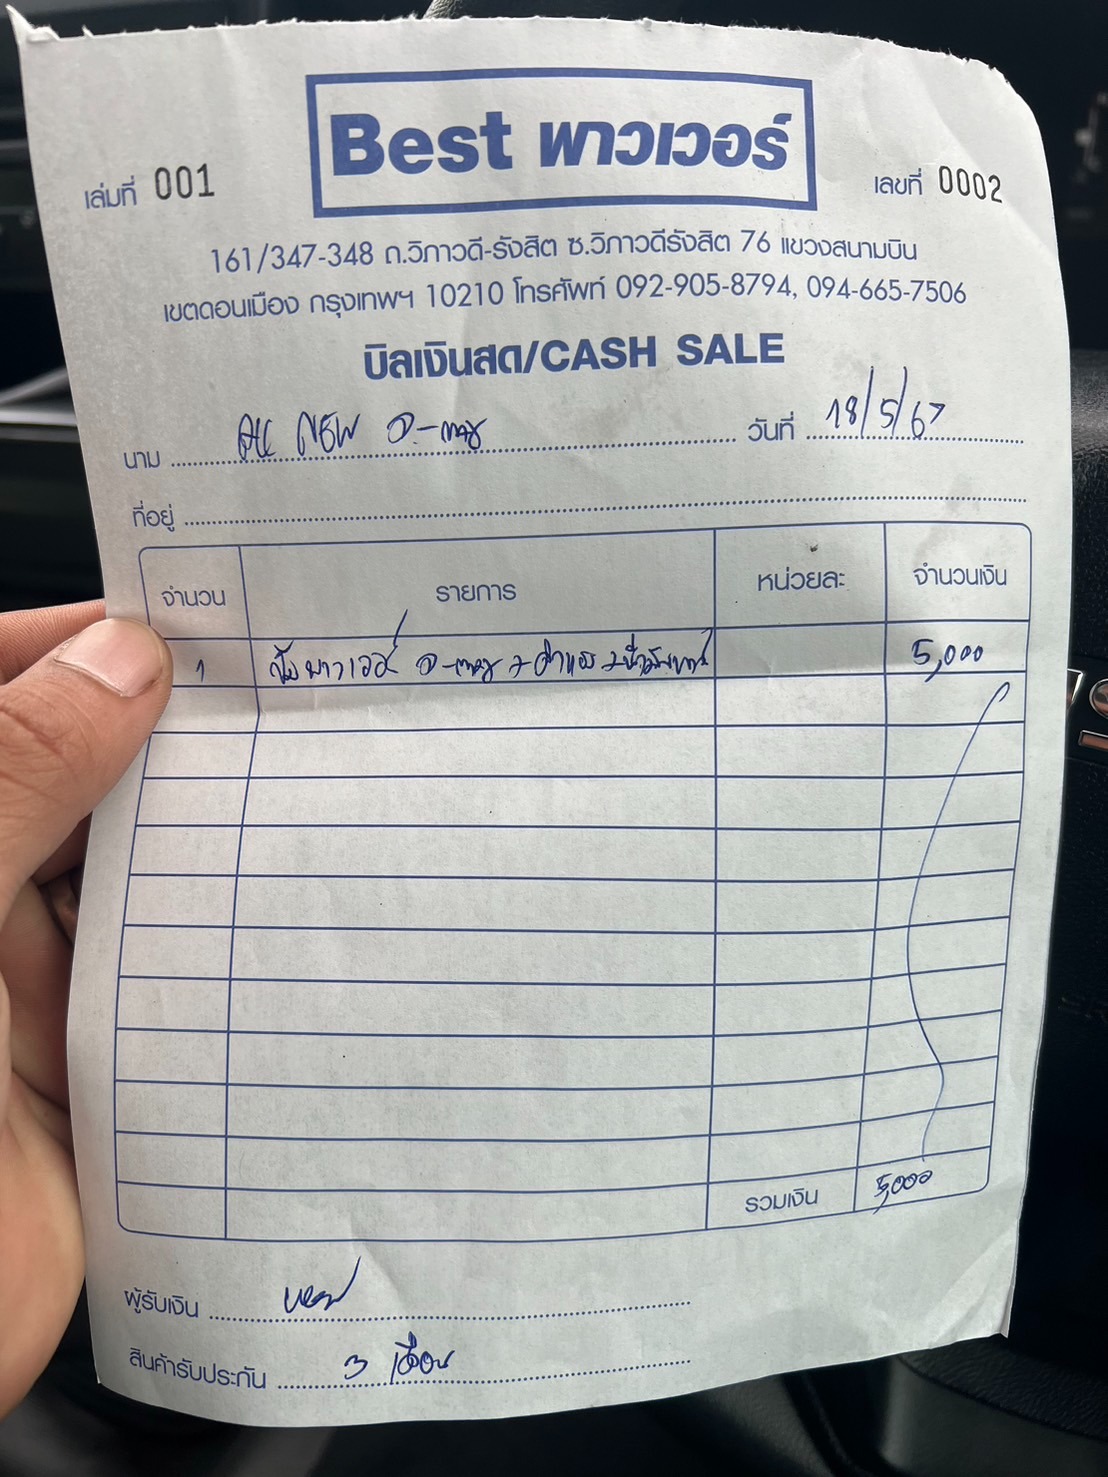 Best พาวเวอร์
เล่มที่ 001
เลขที่ 0002
161/347-348 ถ.วิภาวดี-รังสิต ซ.วิภาวดีรังสิต 76 แขวงสนามบิน
เขตดอนเมือง กรุงเทพฯ 10210 โทรศัพท์ 092-905-8794, 094-665-7506
บิลเงินสด/CASH SALE
นาม ALL NEW D-max วันที่ 18/5/67
ที่อยู่
จำนวน รายการ หน่วยละ จำนวนเงิน
1 ปั๊มพาวเวอร์ D-max + ค่าแรง + 5,000
รวมเงิน 5,000
ผู้รับเงิน
สินค้ารับประกัน 3 เดือน